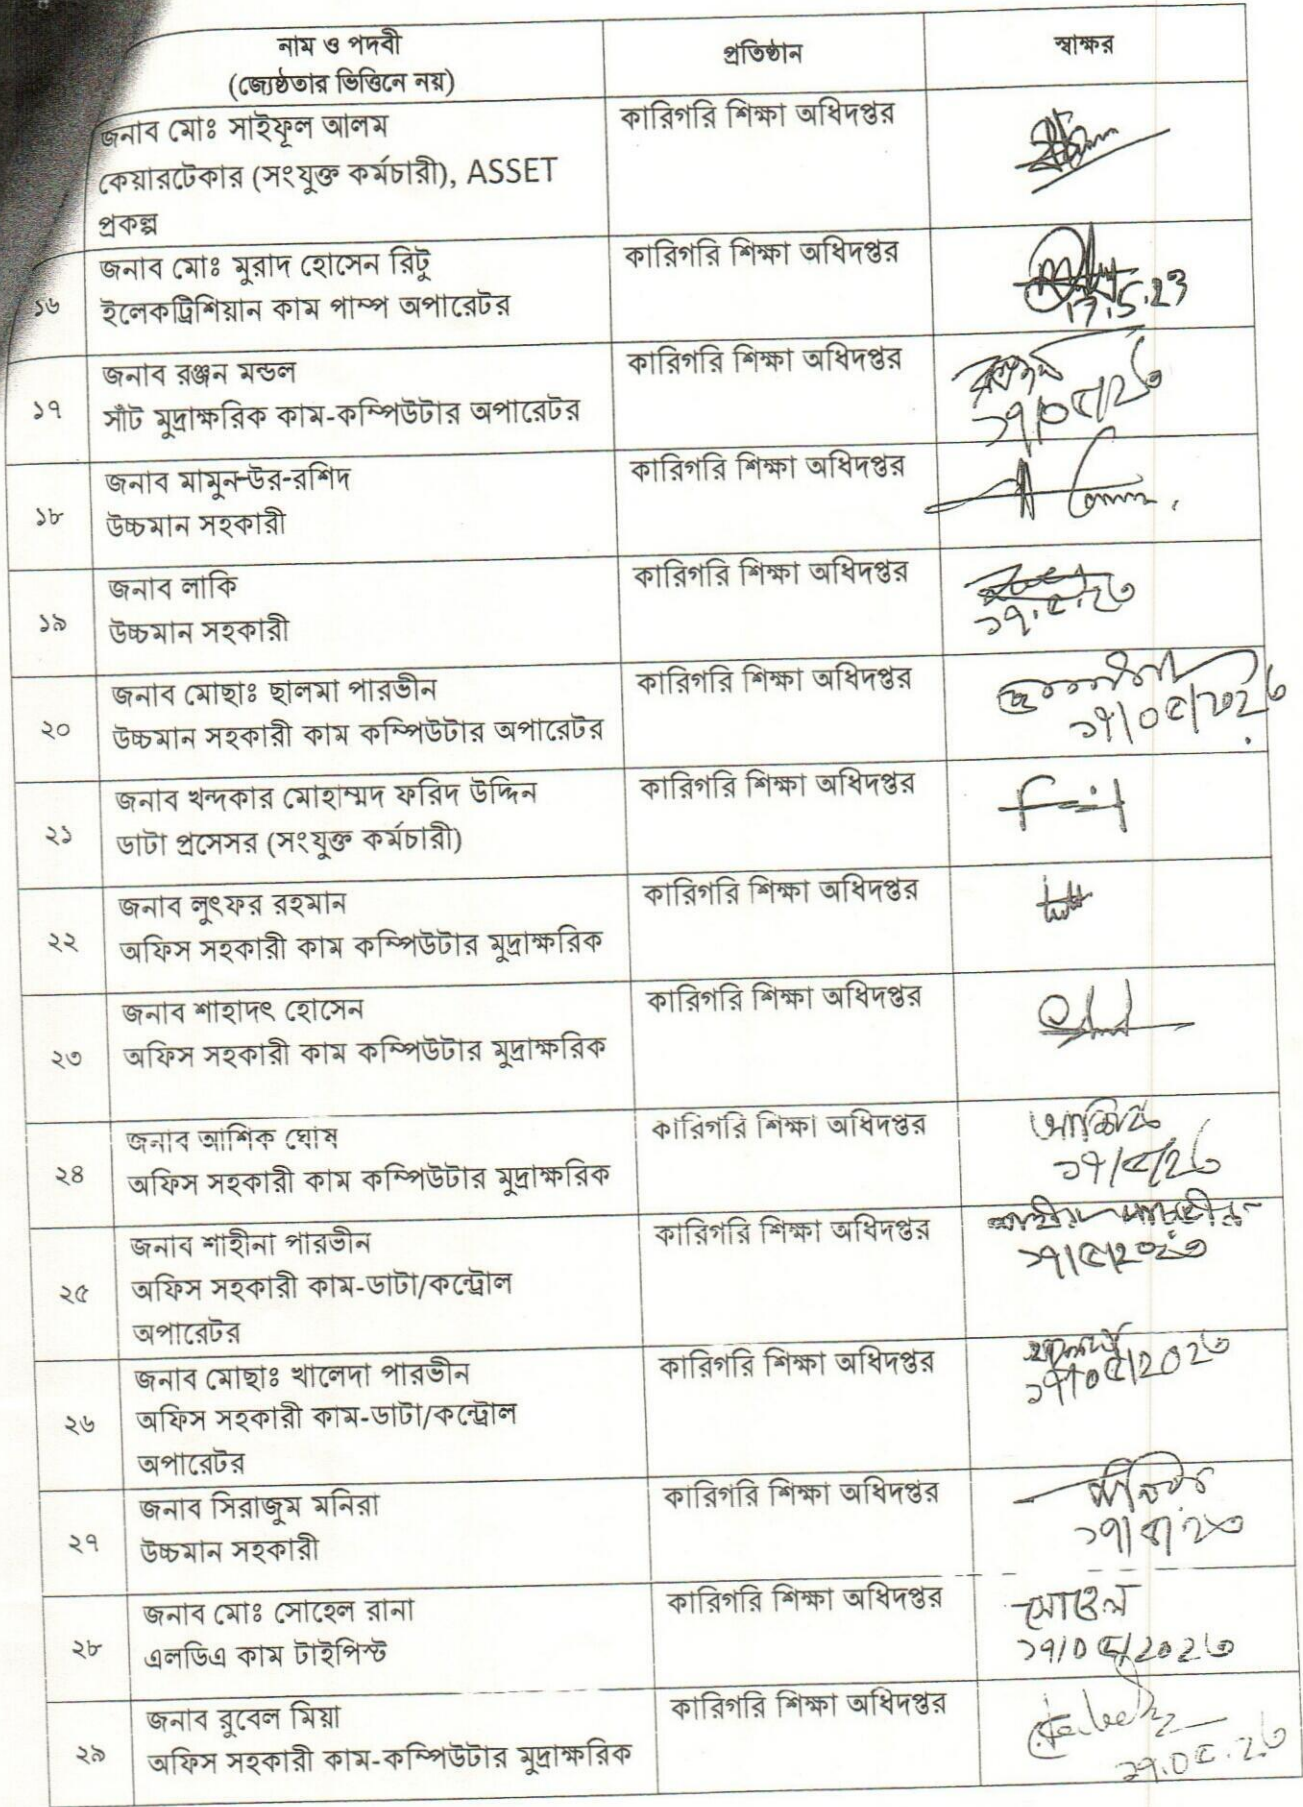 নাম ও পদবী
(জ্যেষ্ঠতার ভিত্তিনে নয়)
প্রতিষ্ঠান
স্বাক্ষর
জনাব মোঃ সাইফুল আলম
কেয়ারটেকার (সংযুক্ত কর্মচারী), ASSET
প্রকল্প
কারিগরি শিক্ষা অধিদপ্তর
১৬
জনাব মোঃ মুরাদ হোসেন রিটু
ইলেকট্রিশিয়ান কাম পাম্প অপারেটর
কারিগরি শিক্ষা অধিদপ্তর
17.5.23
১৭
জনাব রঞ্জন মন্ডল
সাঁট মুদ্রাক্ষরিক কাম-কম্পিউটার অপারেটর
কারিগরি শিক্ষা অধিদপ্তর
১৭/০৫/২৩
১৮
জনাব মামুন-উর-রশিদ
উচ্চমান সহকারী
কারিগরি শিক্ষা অধিদপ্তর
১৯
জনাব লাকি
উচ্চমান সহকারী
কারিগরি শিক্ষা অধিদপ্তর
১৭.৫.২৩
২০
জনাব মোছাঃ ছালমা পারভীন
উচ্চমান সহকারী কাম কম্পিউটার অপারেটর
কারিগরি শিক্ষা অধিদপ্তর
১৭/০৫/২০২৩
২১
জনাব খন্দকার মোহাম্মদ ফরিদ উদ্দিন
ডাটা প্রসেসর (সংযুক্ত কর্মচারী)
কারিগরি শিক্ষা অধিদপ্তর
২২
জনাব লুৎফর রহমান
অফিস সহকারী কাম কম্পিউটার মুদ্রাক্ষরিক
কারিগরি শিক্ষা অধিদপ্তর
২৩
জনাব শাহাদৎ হোসেন
অফিস সহকারী কাম কম্পিউটার মুদ্রাক্ষরিক
কারিগরি শিক্ষা অধিদপ্তর
২৪
জনাব আশিক ঘোষ
অফিস সহকারী কাম কম্পিউটার মুদ্রাক্ষরিক
কারিগরি শিক্ষা অধিদপ্তর
আশিক
১৭/৫/২৩
২৫
জনাব শাহীনা পারভীন
অফিস সহকারী কাম-ডাটা/কন্ট্রোল
অপারেটর
কারিগরি শিক্ষা অধিদপ্তর
শাহীনা পারভীন
১৭/৫/২০২৩
২৬
জনাব মোছাঃ খালেদা পারভীন
অফিস সহকারী কাম-ডাটা/কন্ট্রোল
অপারেটর
কারিগরি শিক্ষা অধিদপ্তর
১৭/০৫/২০২৩
২৭
জনাব সিরাজুম মনিরা
উচ্চমান সহকারী
কারিগরি শিক্ষা অধিদপ্তর
১৭/৫/২৩
২৮
জনাব মোঃ সোহেল রানা
এলডিএ কাম টাইপিস্ট
কারিগরি শিক্ষা অধিদপ্তর
সোহেল
১৭/০৫/২০২৩
২৯
জনাব রুবেল মিয়া
অফিস সহকারী কাম-কম্পিউটার মুদ্রাক্ষরিক
কারিগরি শিক্ষা অধিদপ্তর
১৭.০৫.২৩